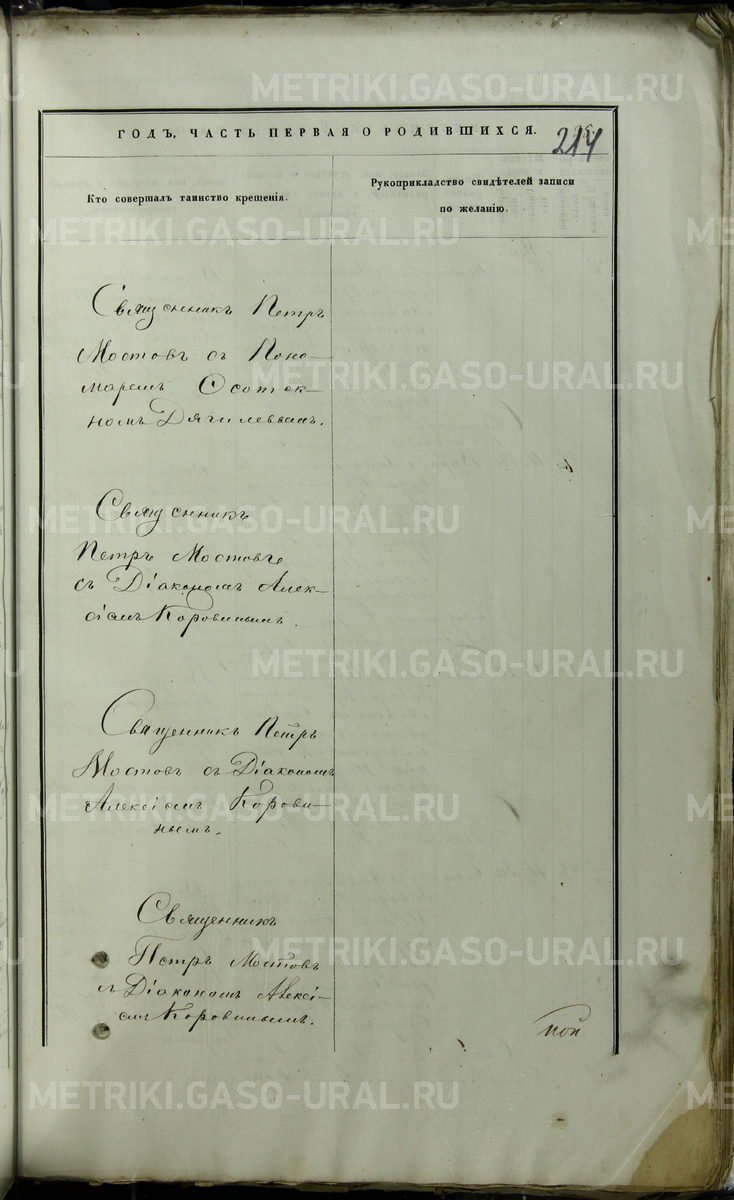 ГОДЪ, ЧАСТЬ ПЕРВАЯ О РОДИВШИХСЯ.
214
Кто совершалъ таинство крещенія.
Рукоприкладство свидѣтелей записи
по желанію.
Священникъ Петръ
Мостовъ съ Поно-
маремъ
номъ Дягилевымъ.
Священникъ
Петръ Мостовъ
съ Діакономъ Алек-
сіемъ Коровинымъ.
Священникъ Петръ
Мостовъ съ Діакономъ
Алексіемъ Корови-
нымъ.
Священникъ
Петръ Мостовъ
съ Діакономъ Алексі-
емъ Коровинымъ.
METRIKI.GASO-URAL.RU